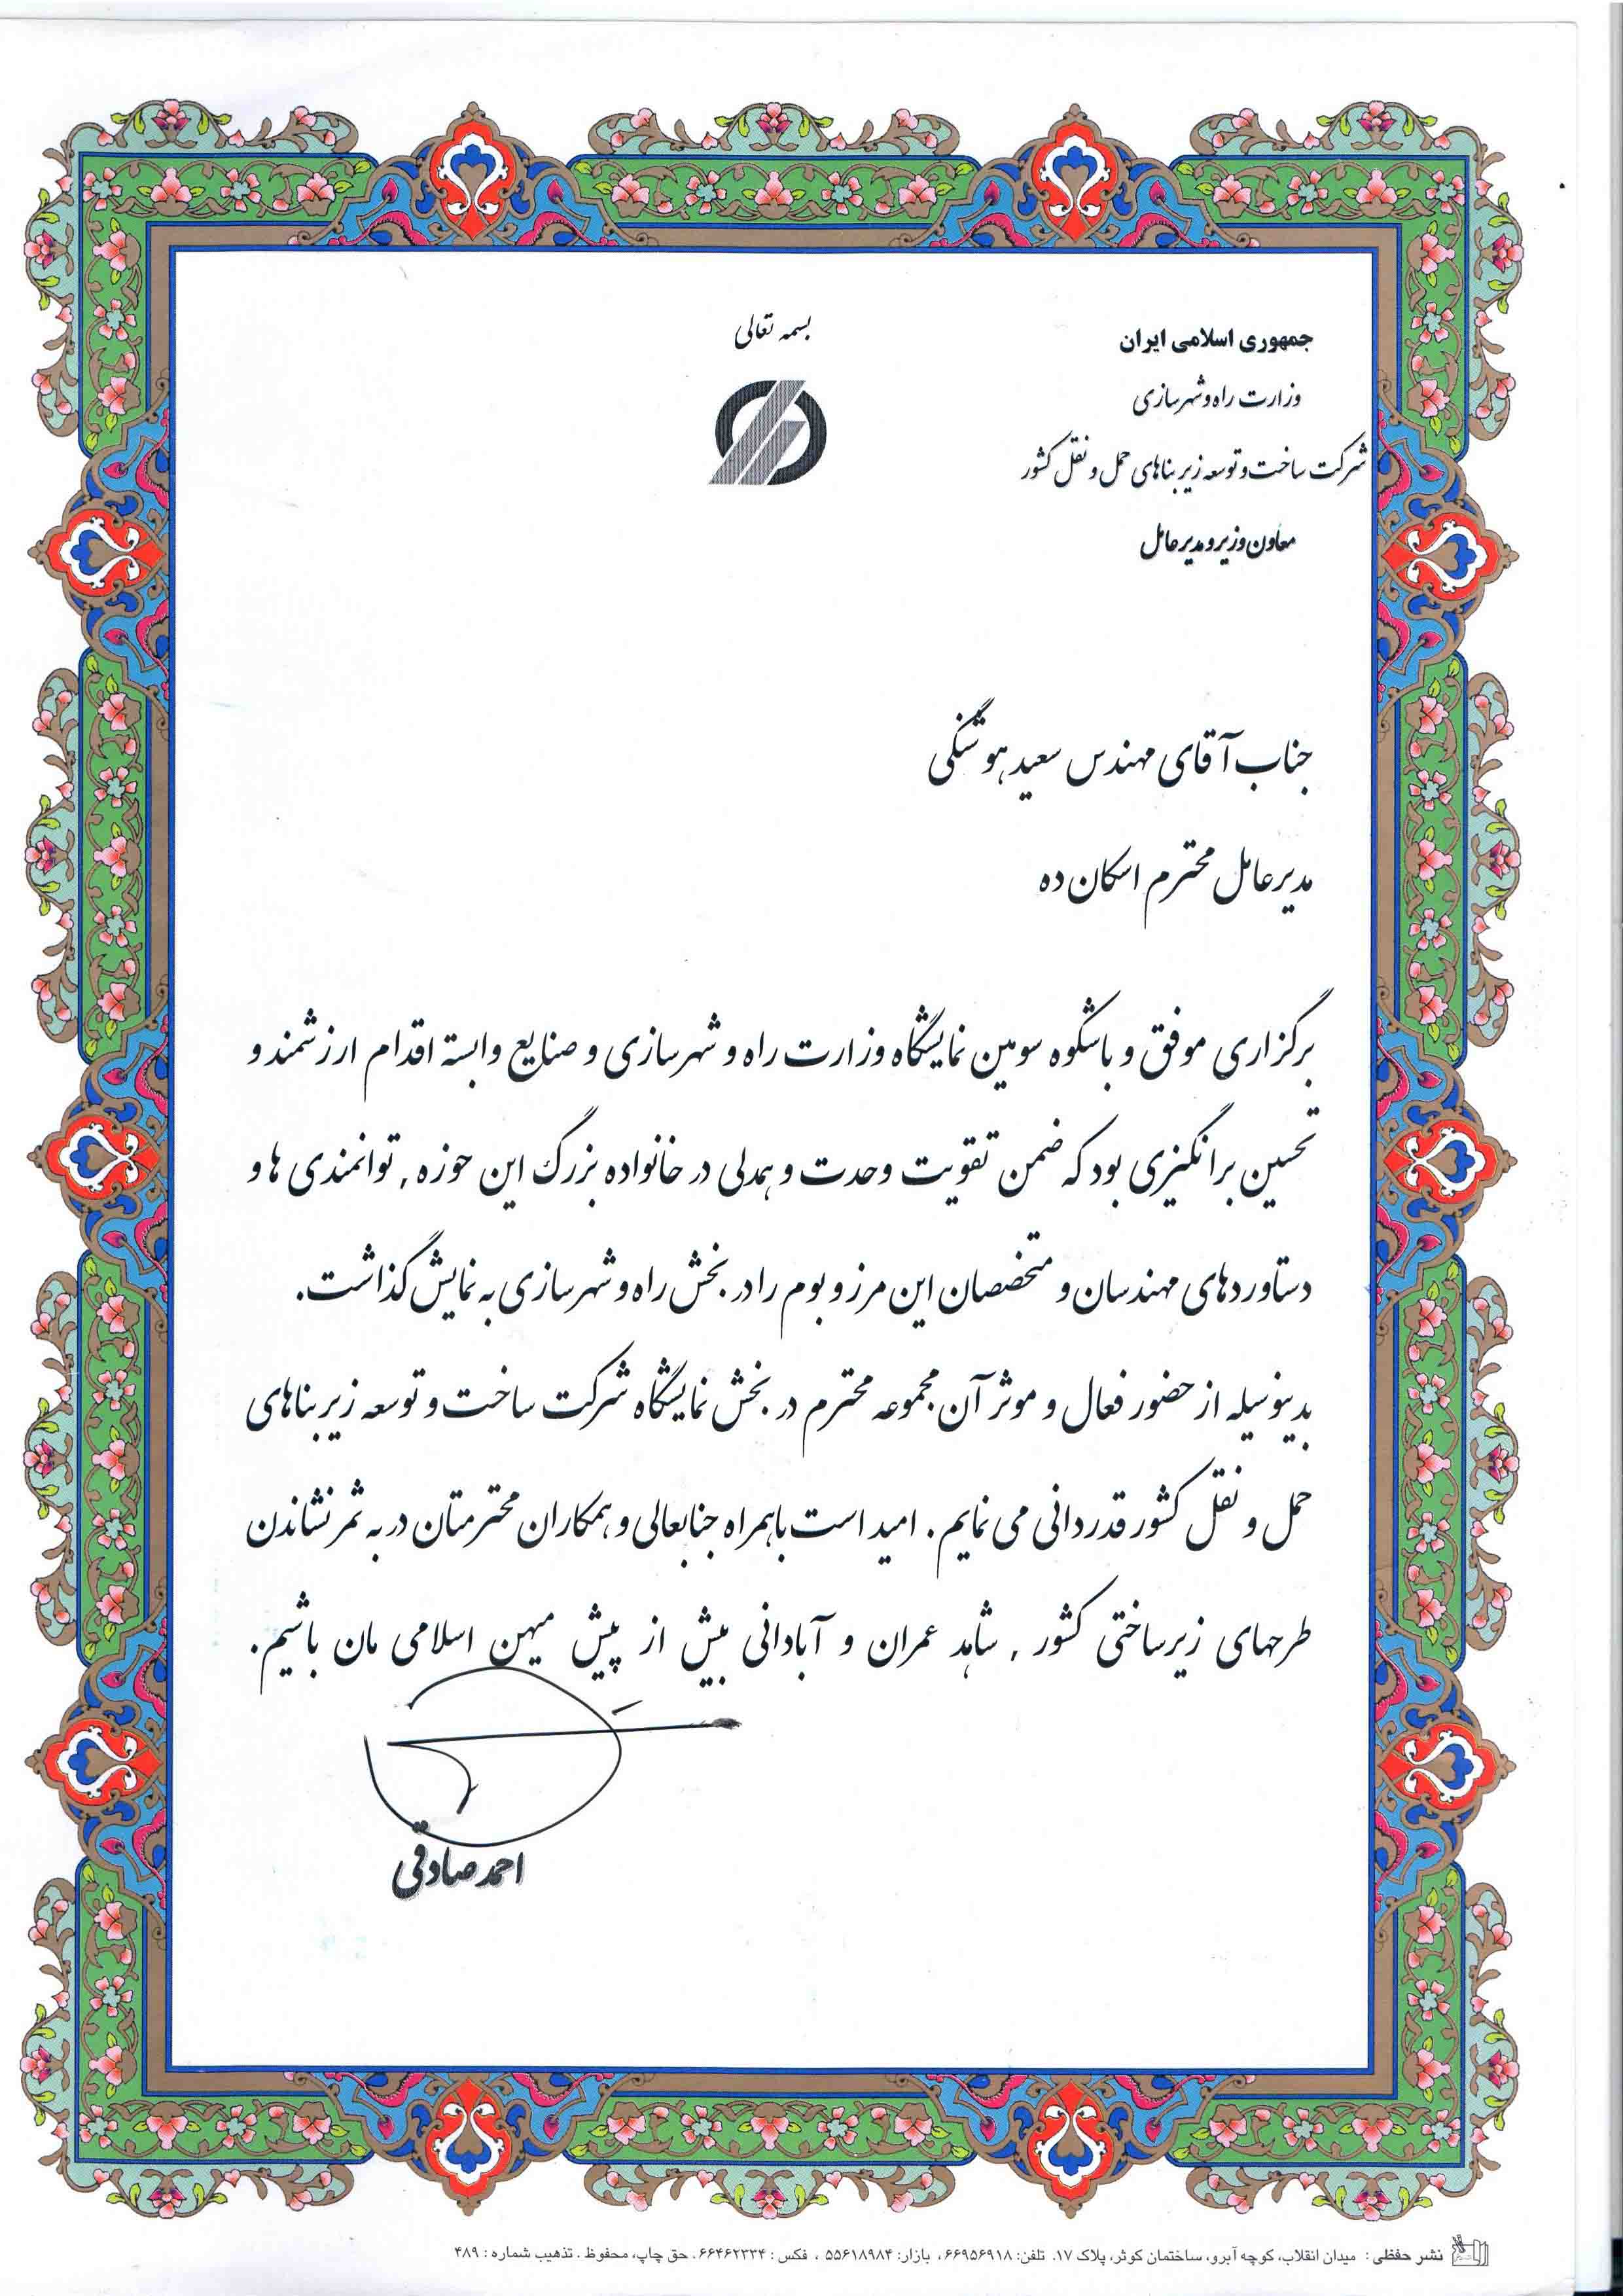 بسمه تعالی
جمهوری اسلامی ایران
وزارت راه و شهرسازی
شرکت ساخت و توسعه زیربناهای حمل و نقل کشور
معاون وزیر و مدیرعامل
جناب آقای مهندس سعید هوشنگی
مدیرعامل محترم اسکان ده
برگزاری موفق و باشکوه سومین نمایشگاه وزارت راه و شهرسازی و صنایع وابسته اقدام ارزشمند و
تحسین برانگیزی بود که ضمن تقویت وحدت و همدلی در خانواده بزرگ این حوزه , توانمندی ها و
دستاوردهای مهندسان و متخصصان این مرز و بوم را در بخش راه و شهرسازی به نمایش گذاشت.
بدینوسیله از حضور فعال و موثر آن مجموعه محترم در بخش نمایشگاه شرکت ساخت و توسعه زیربناهای
حمل و نقل کشور قدردانی می نمایم . امید است باهمراه جنابعالی و همکاران محترمتان در به ثمر نشاندن
طرحهای زیرساختی کشور , شاهد عمران و آبادانی بیش از پیش میهن اسلامی مان باشیم.
احمد صادقی
نشر حفظی : میدان انقلاب، کوچه آبرو، ساختمان کوثر، پلاک ۱۷. تلفن: ۶۶۹۵۶۹۱۸، بازار: ۵۵۶۱۸۹۸۴ ، فکس : ۶۶۴۶۲۳۳۴. حق چاپ، محفوظ . تذهیب شماره : ۴۸۹